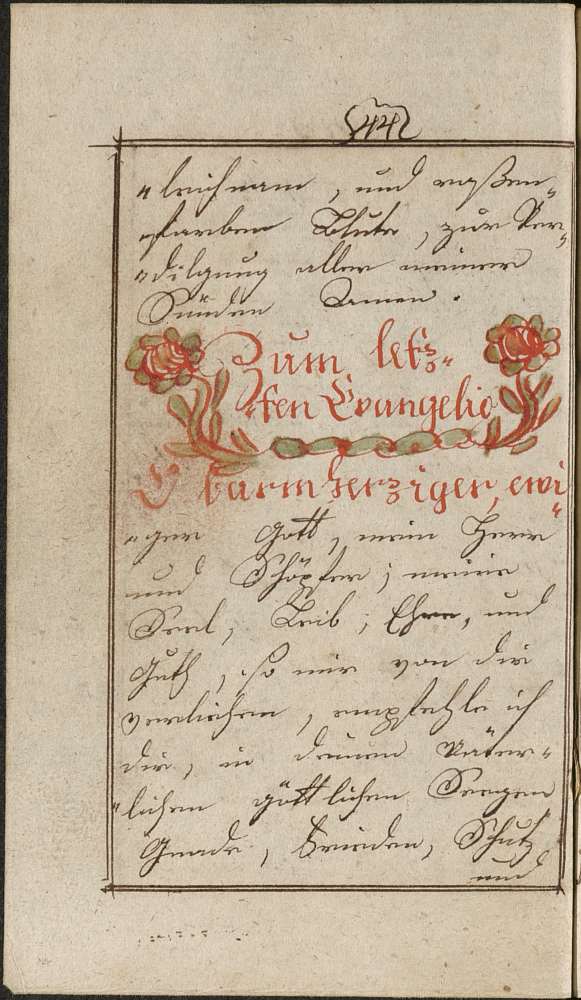 44
"leichnam, und roßen"
"farben Blute, zur Ver"
"dilgung aller meiner
Sünden Amen.
Zum letz="
"ten Evangelio
O barmherziger, ewi"
"ger Gott, mein Herr
und Schöpfer; meine
Seel, Leib; Ehre, und
Guth, so mir von dir
verliehen, empfehle ich
dir, in deinen Väter="
"lichen göttlichen Seegen
Gnade, Frieden, Schutz
und